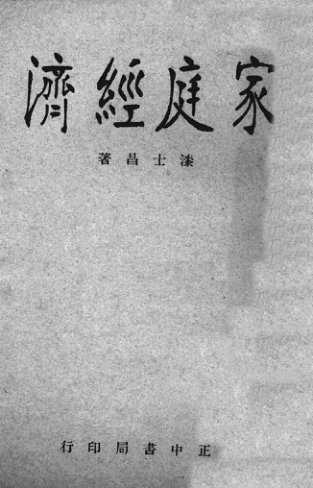 家庭經濟
漆士昌著
正中書局印行